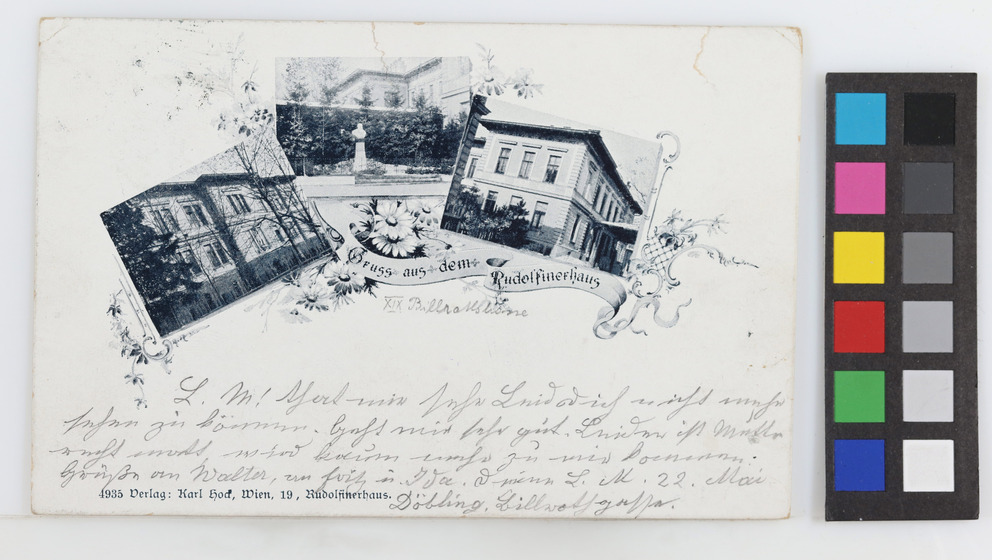 Gruss aus dem Rudolfinerhaus
XIX Billrothstrasse
L. M! That mir sehr Leid dich nicht mehr
sehen zu können. Geht mir sehr gut. Leider ist
recht matt wird kaum mehr zu mir kommen.
Grüße an Walter, an Fritz u. Ida. Deine L. M. 22. Mai
4935 Verlag: Karl Hock, Wien, 19, Rudolfinerhaus.
Döbling, Billrothgasse.